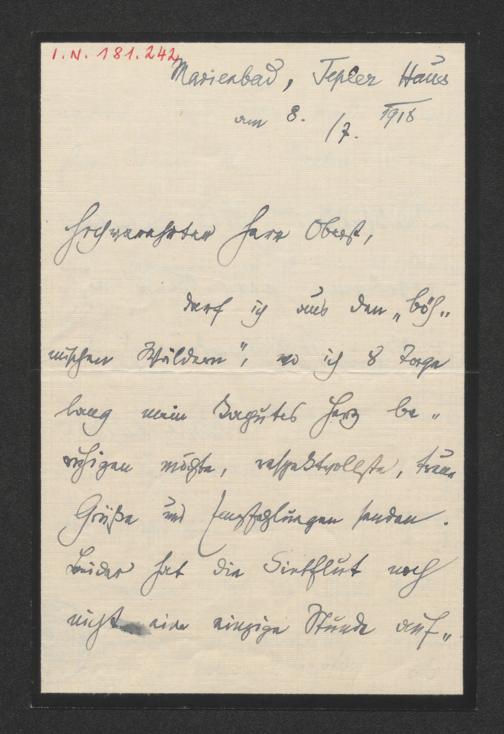 I.N. 181.242
Marienbad, Tepler Haus
am 8. /7. 1918
Hochverehrter Herr Oberst,
darf ich aus den „böh„
mischen Wäldern", wo ich 8 Tage
lang mein kaputes Herz be„
ruhigen möchte, respektvollste, treue
Grüße und Empfehlungen senden.
Leider hat die Sintflut noch
nicht eine einzige Stunde auf„